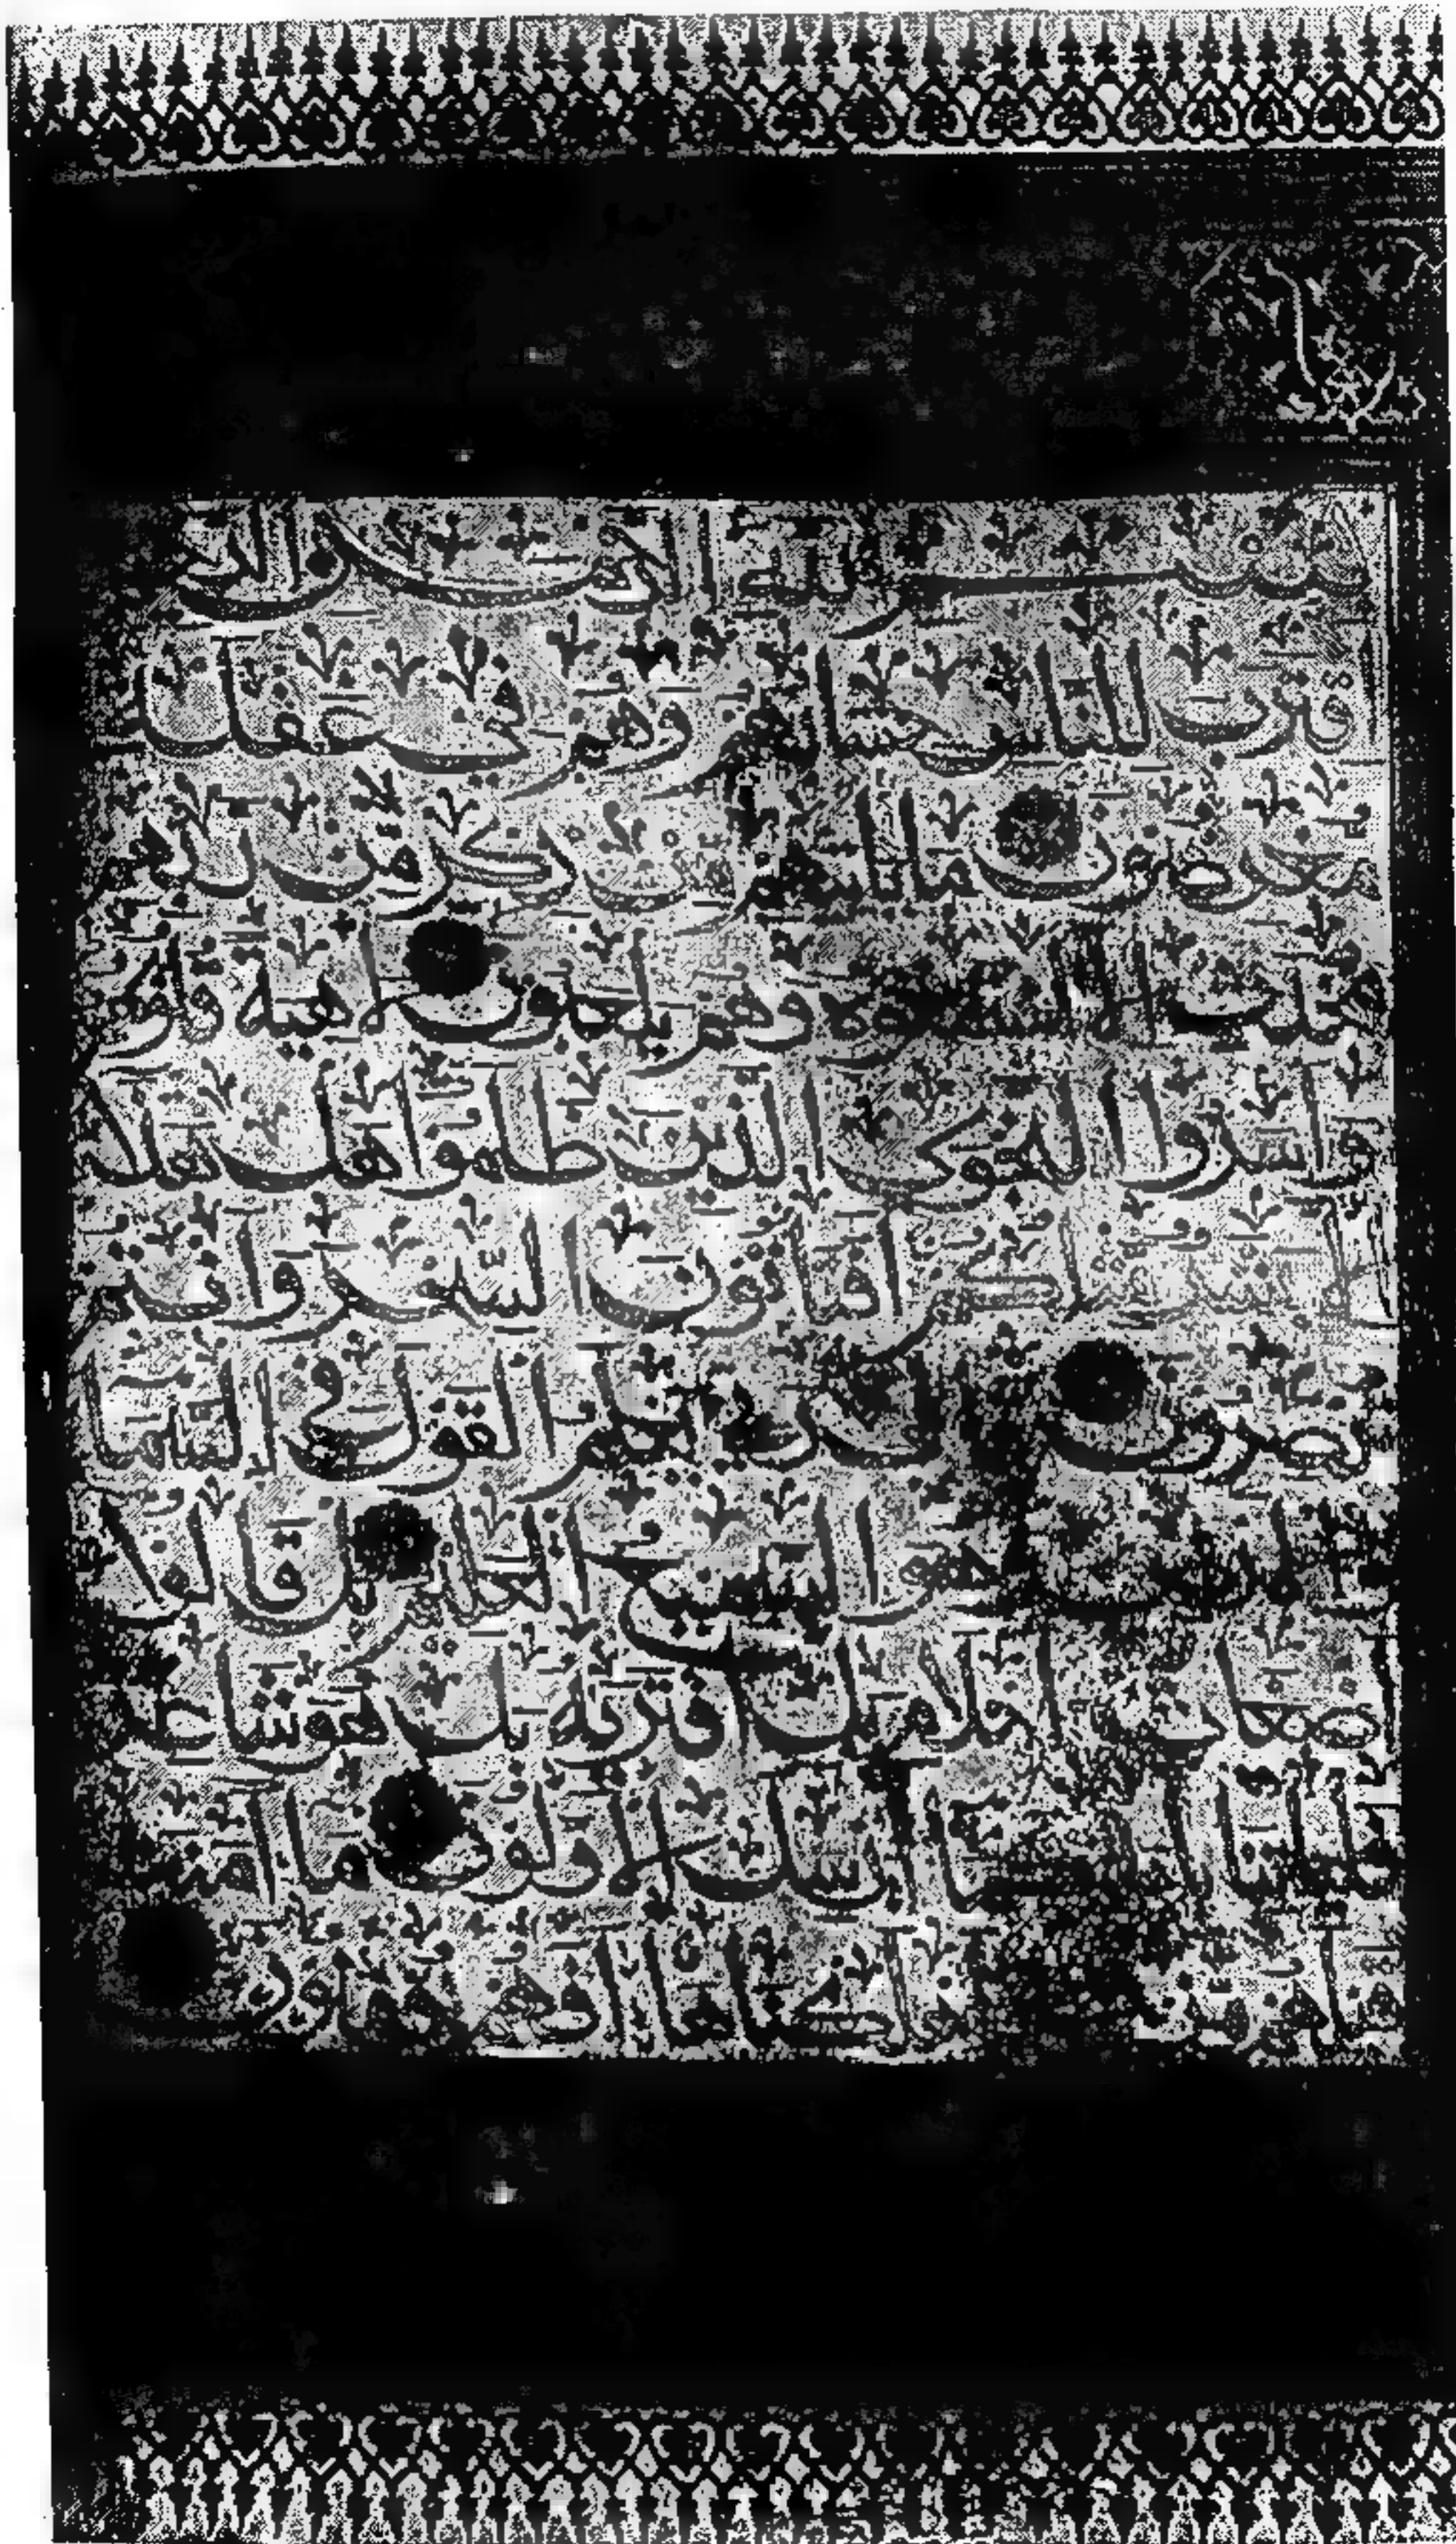 بسم الله الرحمن الرحيم
اقترب للناس حسابهم وهم في غفلة
معرضون ما يأتيهم من ذكر من ربهم
محدث الا استمعوه وهم يلعبون لاهية قلوبهم
واسروا النجوى الذين ظلموا هل هذا
الا بشر مثلكم افتأتون السحر وانتم
تبصرون قل ربي يعلم القول في السماء
والارض وهو السميع العليم بل قالوا
اضغاث احلام بل افتريه بل هو شاعر
فليأتنا بآية كما ارسل الاولون ما امنت
قبلهم من قرية اهلكناها افهم يؤمنون